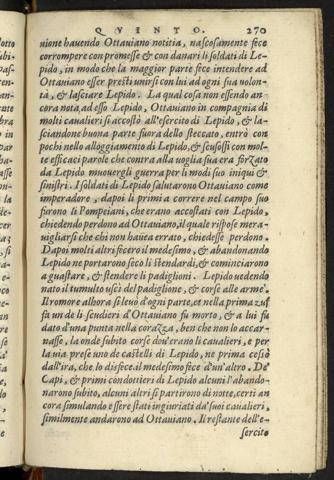 QVINTO. 270
uione hauendo Ottauiano notitia, nascosamente fece
corrompere con promesse & con danari li soldati di Le-
pido, in modo che la maggior parte fece intendere ad
Ottauiano esser presti unirsi con lui ad ogni sua volon-
tà, & lasciare Lepido. La qual cosa non essendo an-
cora nota ad esso Lepido, Ottauiano in compagnia di
molti cauallieri si accostò all'esercito di Lepido, & la-
sciandone buona parte fuora dello steccato, entrò con
pochi nello alloggiamento di Lepido, & scusossi con mol-
te efficaci parole che contra alla voglia sua era forzato
da Lepido muouergli guerra per li modi suo iniqui &
sinistri. I soldati di Lepido salutarono Ottauiano come
imperadore, dapoi li primi a correre nel campo suo
furono li Pompeiani, che erano accostati con Lepido,
chiedendo perdono ad Ottauiano, il quale rispose mera-
uigliarsi che chi non hauea errato, chiedesse perdono.
Dapoi molti altri fecero il medesimo, & abandonando
Lepido ne portarono seco li stendardi, & cominciarono
a guastare, & stendere li padiglioni. Lepido uedendo
nato il tumulto uscì del padiglione, & corse alle arme.
Il romore alhora si leuò d'ogni parte, et nella prima zuf
fa un de li scudieri d'Ottauiano fu morto, & a lui fu
dato d'una punta nella corazza, ben che non lo accar-
nasse, la onde subito corse dou'erano li cauallieri, e per
la uia prese uno de castelli di Lepido, ne prima cessò
dall'ira, che lo disfece. il medesimo fece d'un'altro. De
Capi, & primi condottieri di Lepido alcuni l'abando-
narono subito, alcuni altri si partirono di notte, certi an
cora simulando essere stati ingiuriati da' suoi cauallieri,
similmente andarono ad Ottauiano. Il restante dell'e-
sercito